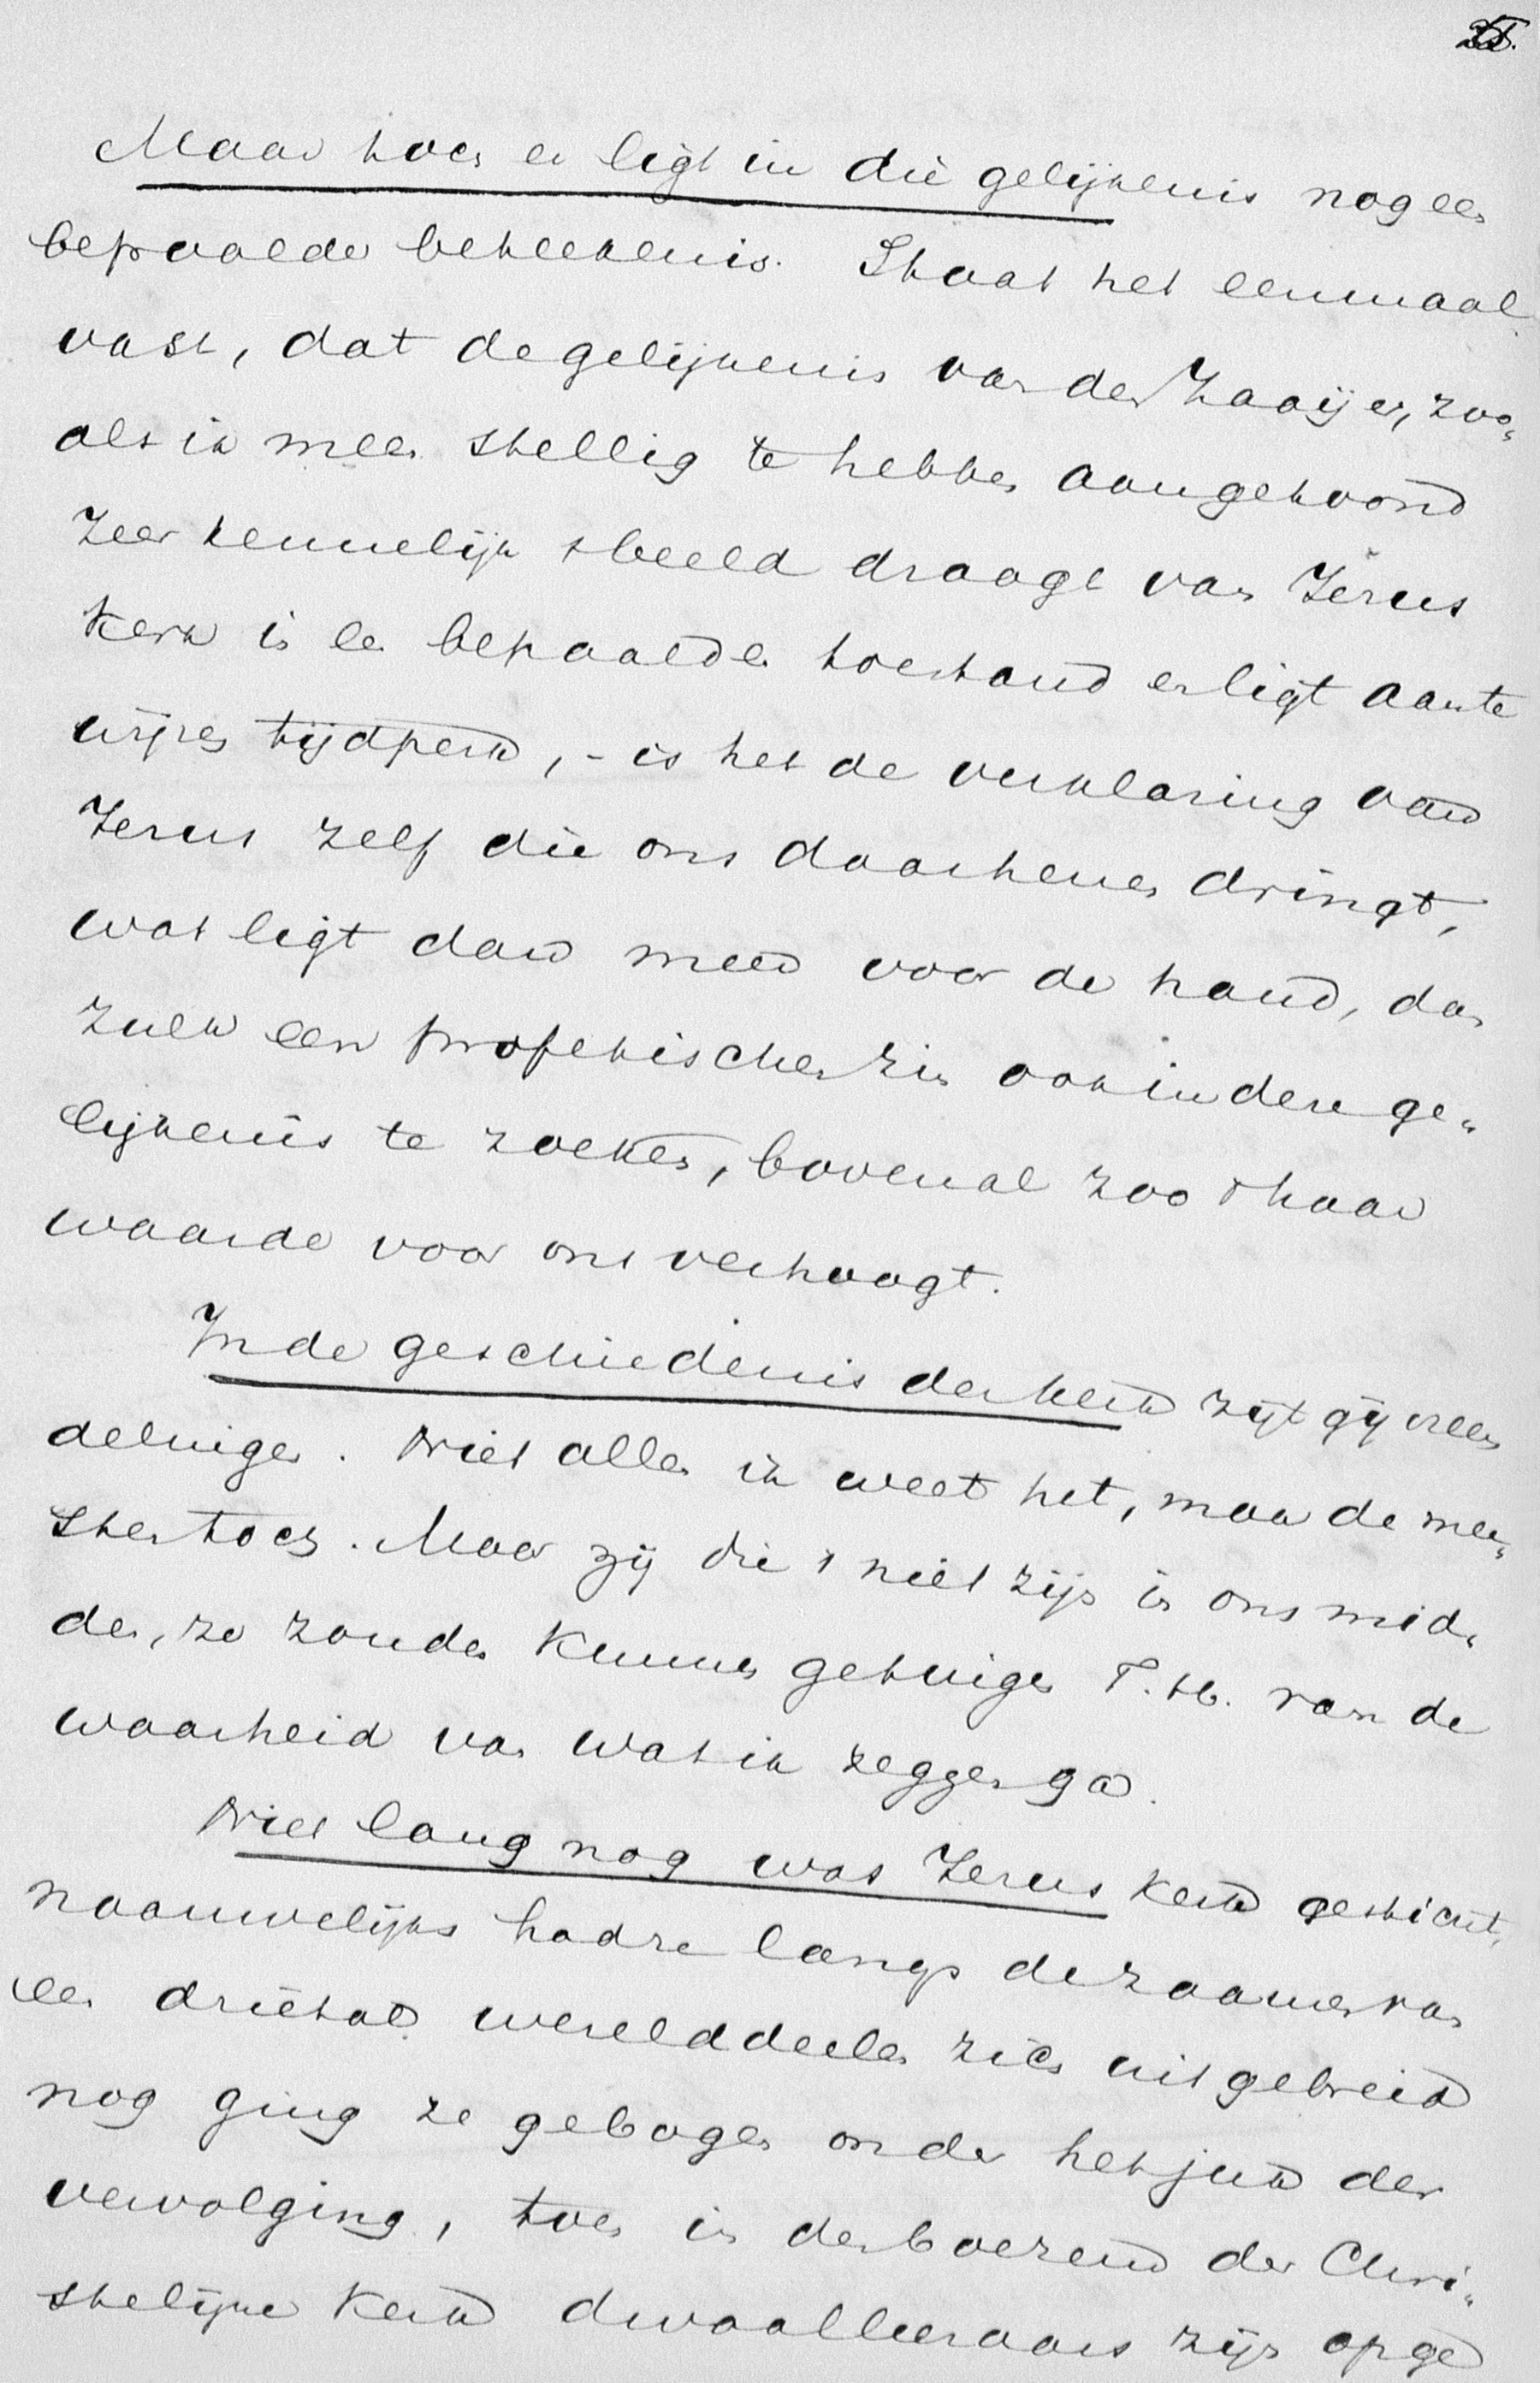 Maar toch er ligt in die gelijkenis nog een
bepaalde beteekenis. Staat het eenmaal
vast, dat de gelijkenis van den Zaaijer, zoo„
als ik meen stellig te hebben aangetoond
zeer kennelijk 't beeld draagt van Jezus
Kerk in een bepaalden toestand en ligt aan te
wijzen tijdperk, - is het de verklaring van
Jezus zelf die ons daarhenen dringt,
wat ligt dan meer voor de hand, dan
zulk een profetischen zin ook in deze ge„
lijkenis te zoeken, bovenal zoo 't haar
waarde voor ons verhoogt.
In de geschiedenis der kerk zijt gij vreem
delingen. Niet allen ik weet het, maar de mee„
sten toch. Maar zij die 't niet zijn in ons mid„
den, ze zouden kunnen getuigen T. H. van de
waarheid van wat ik zeggen ga.
Niet lang nog was Jezus kerk gesticht,
naauwelijks had ze langs de zoomen van
een drietal werelddeelen zich uitgebreid
nog ging ze gebogen onder het juk der
vervolging, toen in den boezem der Chri„
stelijke Kerk dwaalleeraars zijn opge